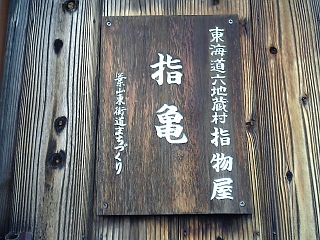 東海道六地蔵村 指物屋
指亀
葉山東街道まちづくり